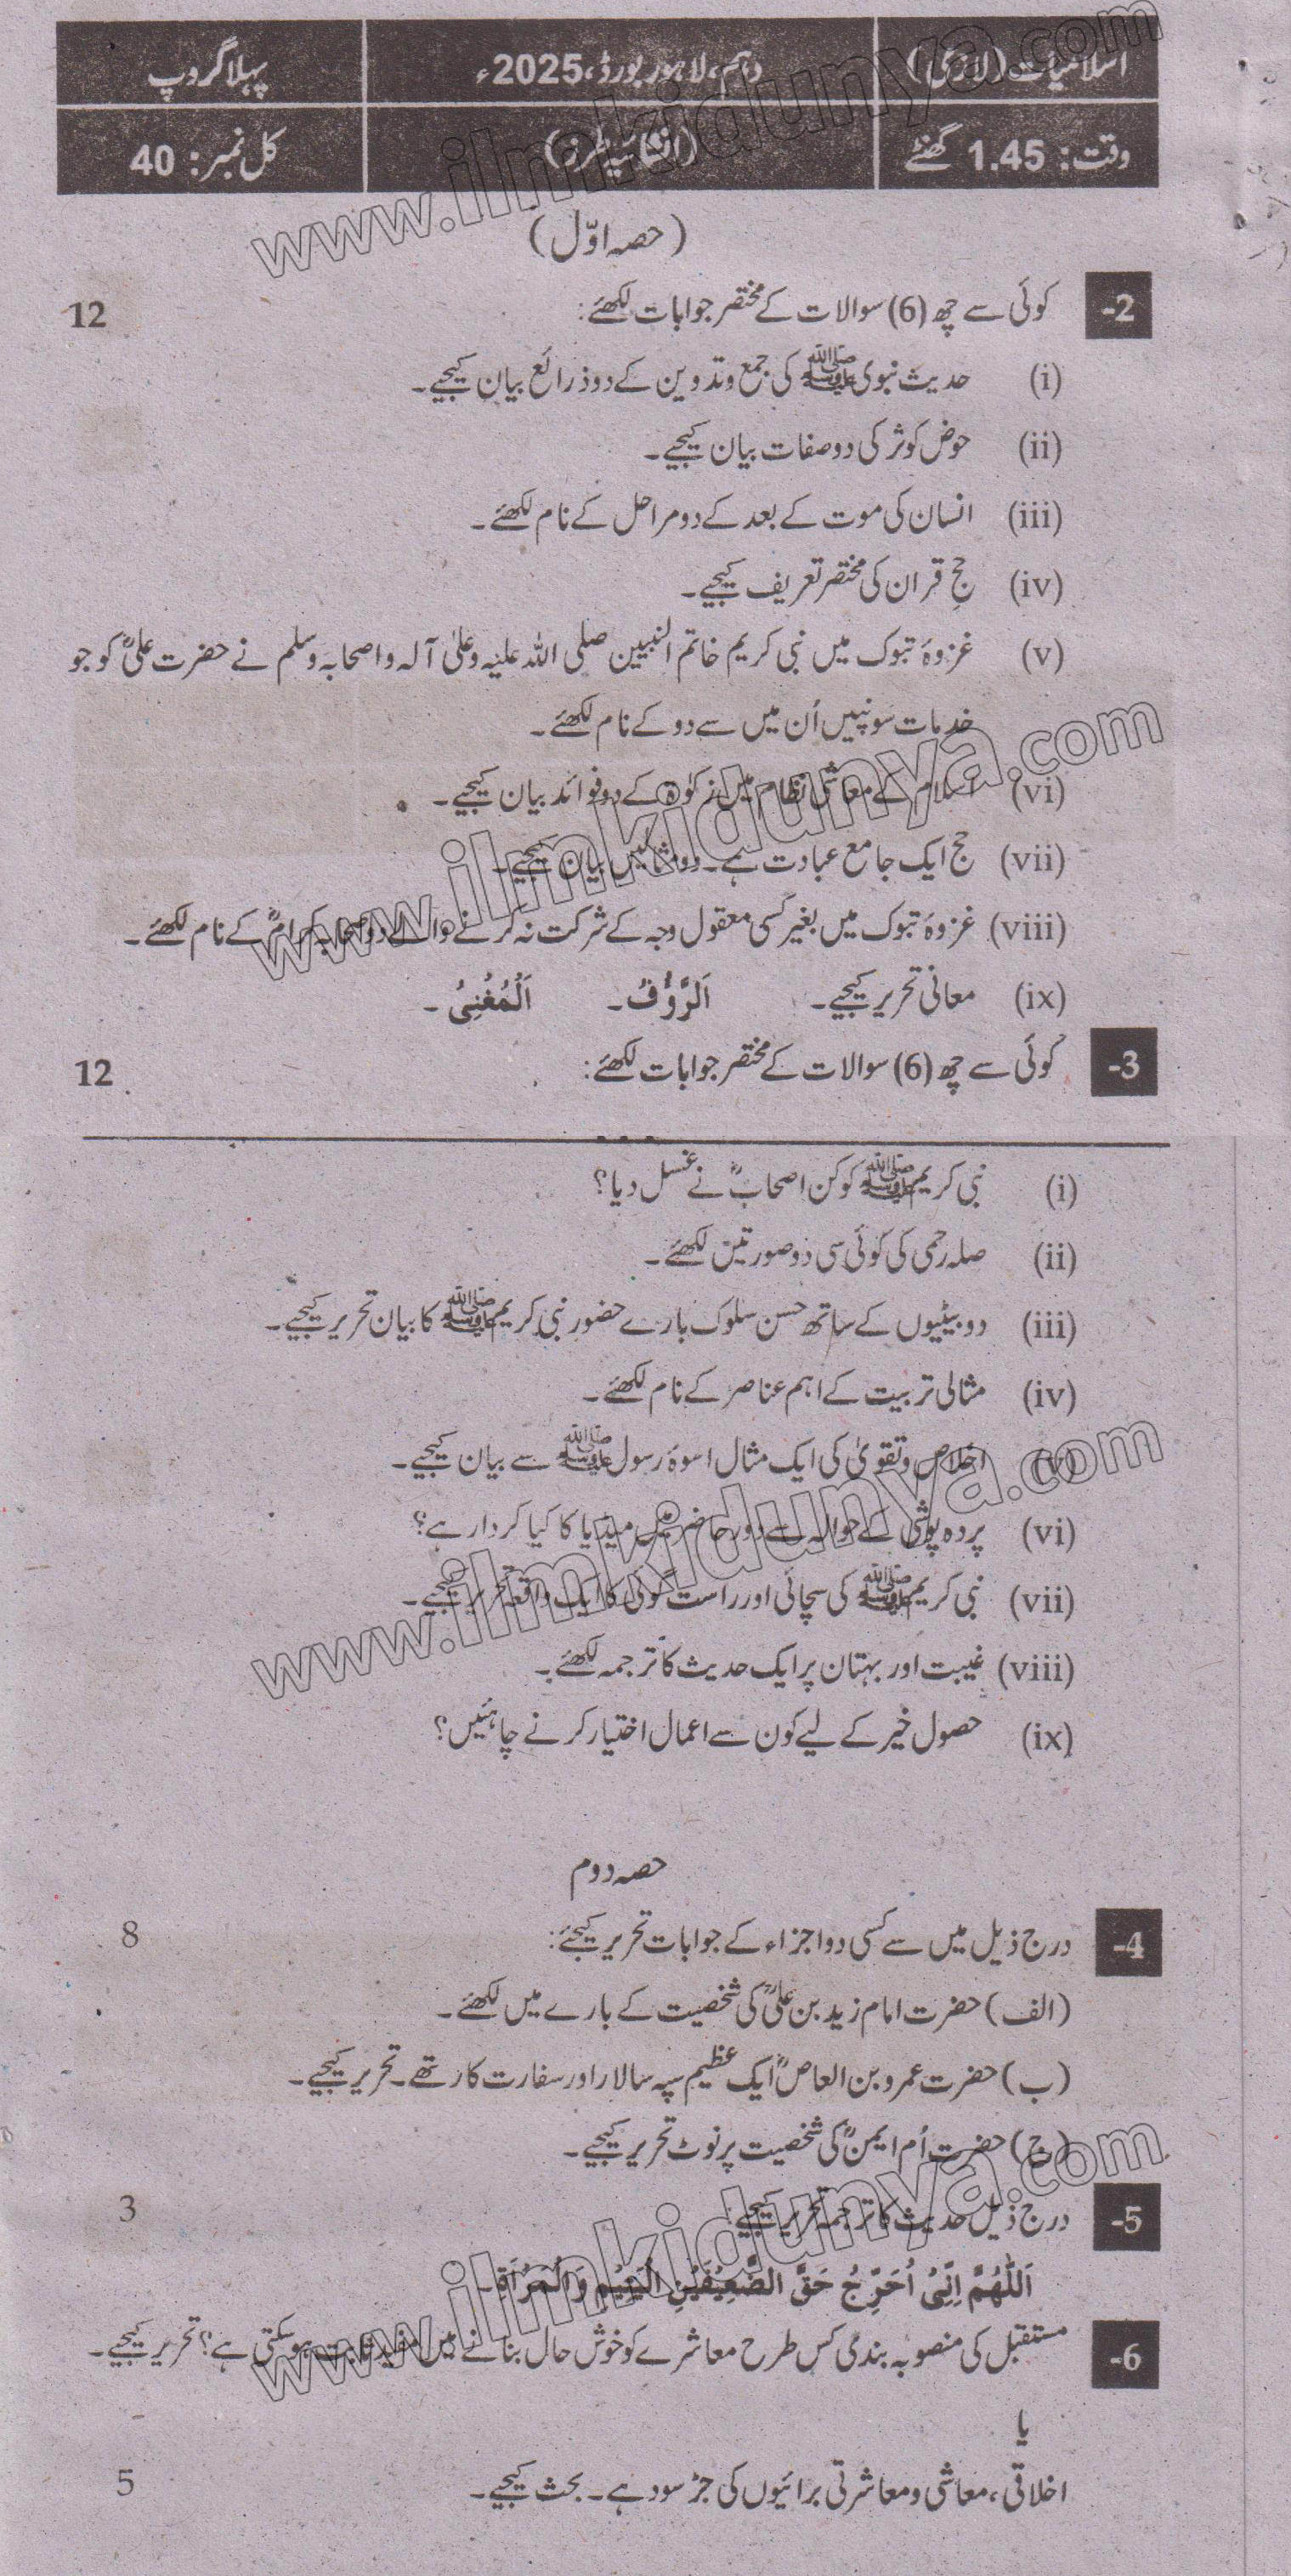 اسلامیات (لازمی) دہم، لاہور بورڈ، 2025ء پہلا گروپ
وقت: 1.45 گھنٹے (انشائیہ طرز) کل نمبر: 40
(حصہ اوّل)
2- کوئی سے چھ (6) سوالات کے مختصر جوابات لکھئے: 12
(i) حدیث نبوی ﷺ کی جمع و تدوین کے دو ذرائع بیان کیجیے۔
(ii) حوض کوثر کی دو صفات بیان کیجیے۔
(iii) انسان کی موت کے بعد کے دو مراحل کے نام لکھئے۔
(iv) حجِ قران کی مختصر تعریف کیجیے۔
(v) غزوۂ تبوک میں نبی کریم خاتم النبیین صلی اللہ علیہ وعلیٰ آلہ واصحابہ وسلم نے حضرت علیؓ کو جو
خدمات سونپیں اُن میں سے دو کے نام لکھئے۔
(vi) اسلام کے معاشی نظام میں زکوٰۃ کے دو فوائد بیان کیجیے۔
(vii) حج ایک جامع عبادت ہے۔ دو مثالیں بیان کیجیے۔
(viii) غزوۂ تبوک میں بغیر کسی معقول وجہ کے شرکت نہ کرنے والے دو صحابہ کرامؓ کے نام لکھئے۔
(ix) معانی تحریر کیجیے۔ اَلرَّؤُفُ۔ اَلْمُغْنِیُ۔
3- کوئی سے چھ (6) سوالات کے مختصر جوابات لکھئے: 12
(i) نبی کریم ﷺ کو کن اصحابؓ نے غسل دیا؟
(ii) صلہ رحمی کی کوئی سی دو صورتیں لکھئے۔
(iii) دو بیٹیوں کے ساتھ حسن سلوک بارے حضور نبی کریم ﷺ کا بیان تحریر کیجیے۔
(iv) مثالی تربیت کے اہم عناصر کے نام لکھئے۔
(v) اخلاص و تقویٰ کی ایک مثال اسوۂ رسول ﷺ سے بیان کیجیے۔
(vi) پردہ پوشی کے حوالہ سے دور حاضر میں میڈیا کا کیا کردار ہے؟
(vii) نبی کریم ﷺ کی سچائی اور راست گوئی کا ایک واقعہ تحریر کیجیے۔
(viii) غیبت اور بہتان پر ایک حدیث کا ترجمہ لکھئے۔
(ix) حصول خیر کے لیے کون سے اعمال اختیار کرنے چاہئیں؟
حصہ دوم
4- درج ذیل میں سے کسی دو اجزاء کے جوابات تحریر کیجئے: 8
(الف) حضرت امام زید بن علیؒ کی شخصیت کے بارے میں لکھئے۔
(ب) حضرت عمرو بن العاصؓ ایک عظیم سپہ سالار اور سفارت کار تھے۔ تحریر کیجیے۔
(ج) حضرت اُم ایمنؓ کی شخصیت پر نوٹ تحریر کیجیے۔
5- درج ذیل حدیث کا ترجمہ تحریر کیجیے: 3
اَللّٰهُمَّ اِنِّیْ اُحَرِّجُ حَقَّ الضَّعِيْفَيْنِ الْيَتِيْمِ وَالْمَرْأَةِ۔
6- مستقبل کی منصوبہ بندی کس طرح معاشرے کو خوش حال بنانے میں مفید ثابت ہو سکتی ہے؟ تحریر کیجیے۔
یا
اخلاقی، معاشی و معاشرتی برائیوں کی جڑ سود ہے۔ بحث کیجیے۔ 5
www.ilmkidunya.com
www.ilmkidunya.com
www.ilmkidunya.com
www.ilmkidunya.com